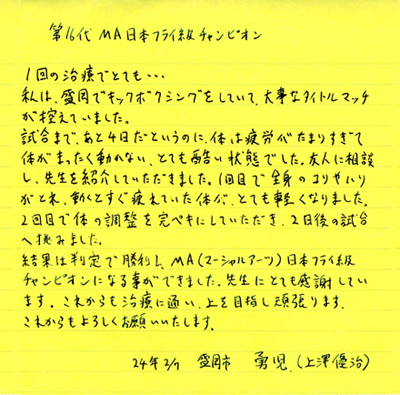 第16代 MA日本フライ級チャンピオン
1回の治療でとても・・・
私は、盛岡でキックボクシングをしていて、大事なタイトルマッチ
が控えていました。
試合まで、あと4日だというのに、体は疲労がたまりすぎて
体がまったく動かない、とても酷い状態でした。友人に相談
し、先生を紹介していただきました。1回目で全身のコリやハリ
がとれ、動くとすぐ疲れていた体が、とても軽くなりました。
2回目で体の調整を完ペキにしていただき、2日後の試合
へ挑みました。
結果は判定で勝利!、MA(マーシャルアーツ)日本フライ級
チャンピオンになる事ができました。先生にとても感謝してい
ます。これからも治療に通い、上を目指し頑張ります。
これからもよろしくお願いいたします。
24年2/7 盛岡市 勇児.(上澤優治)